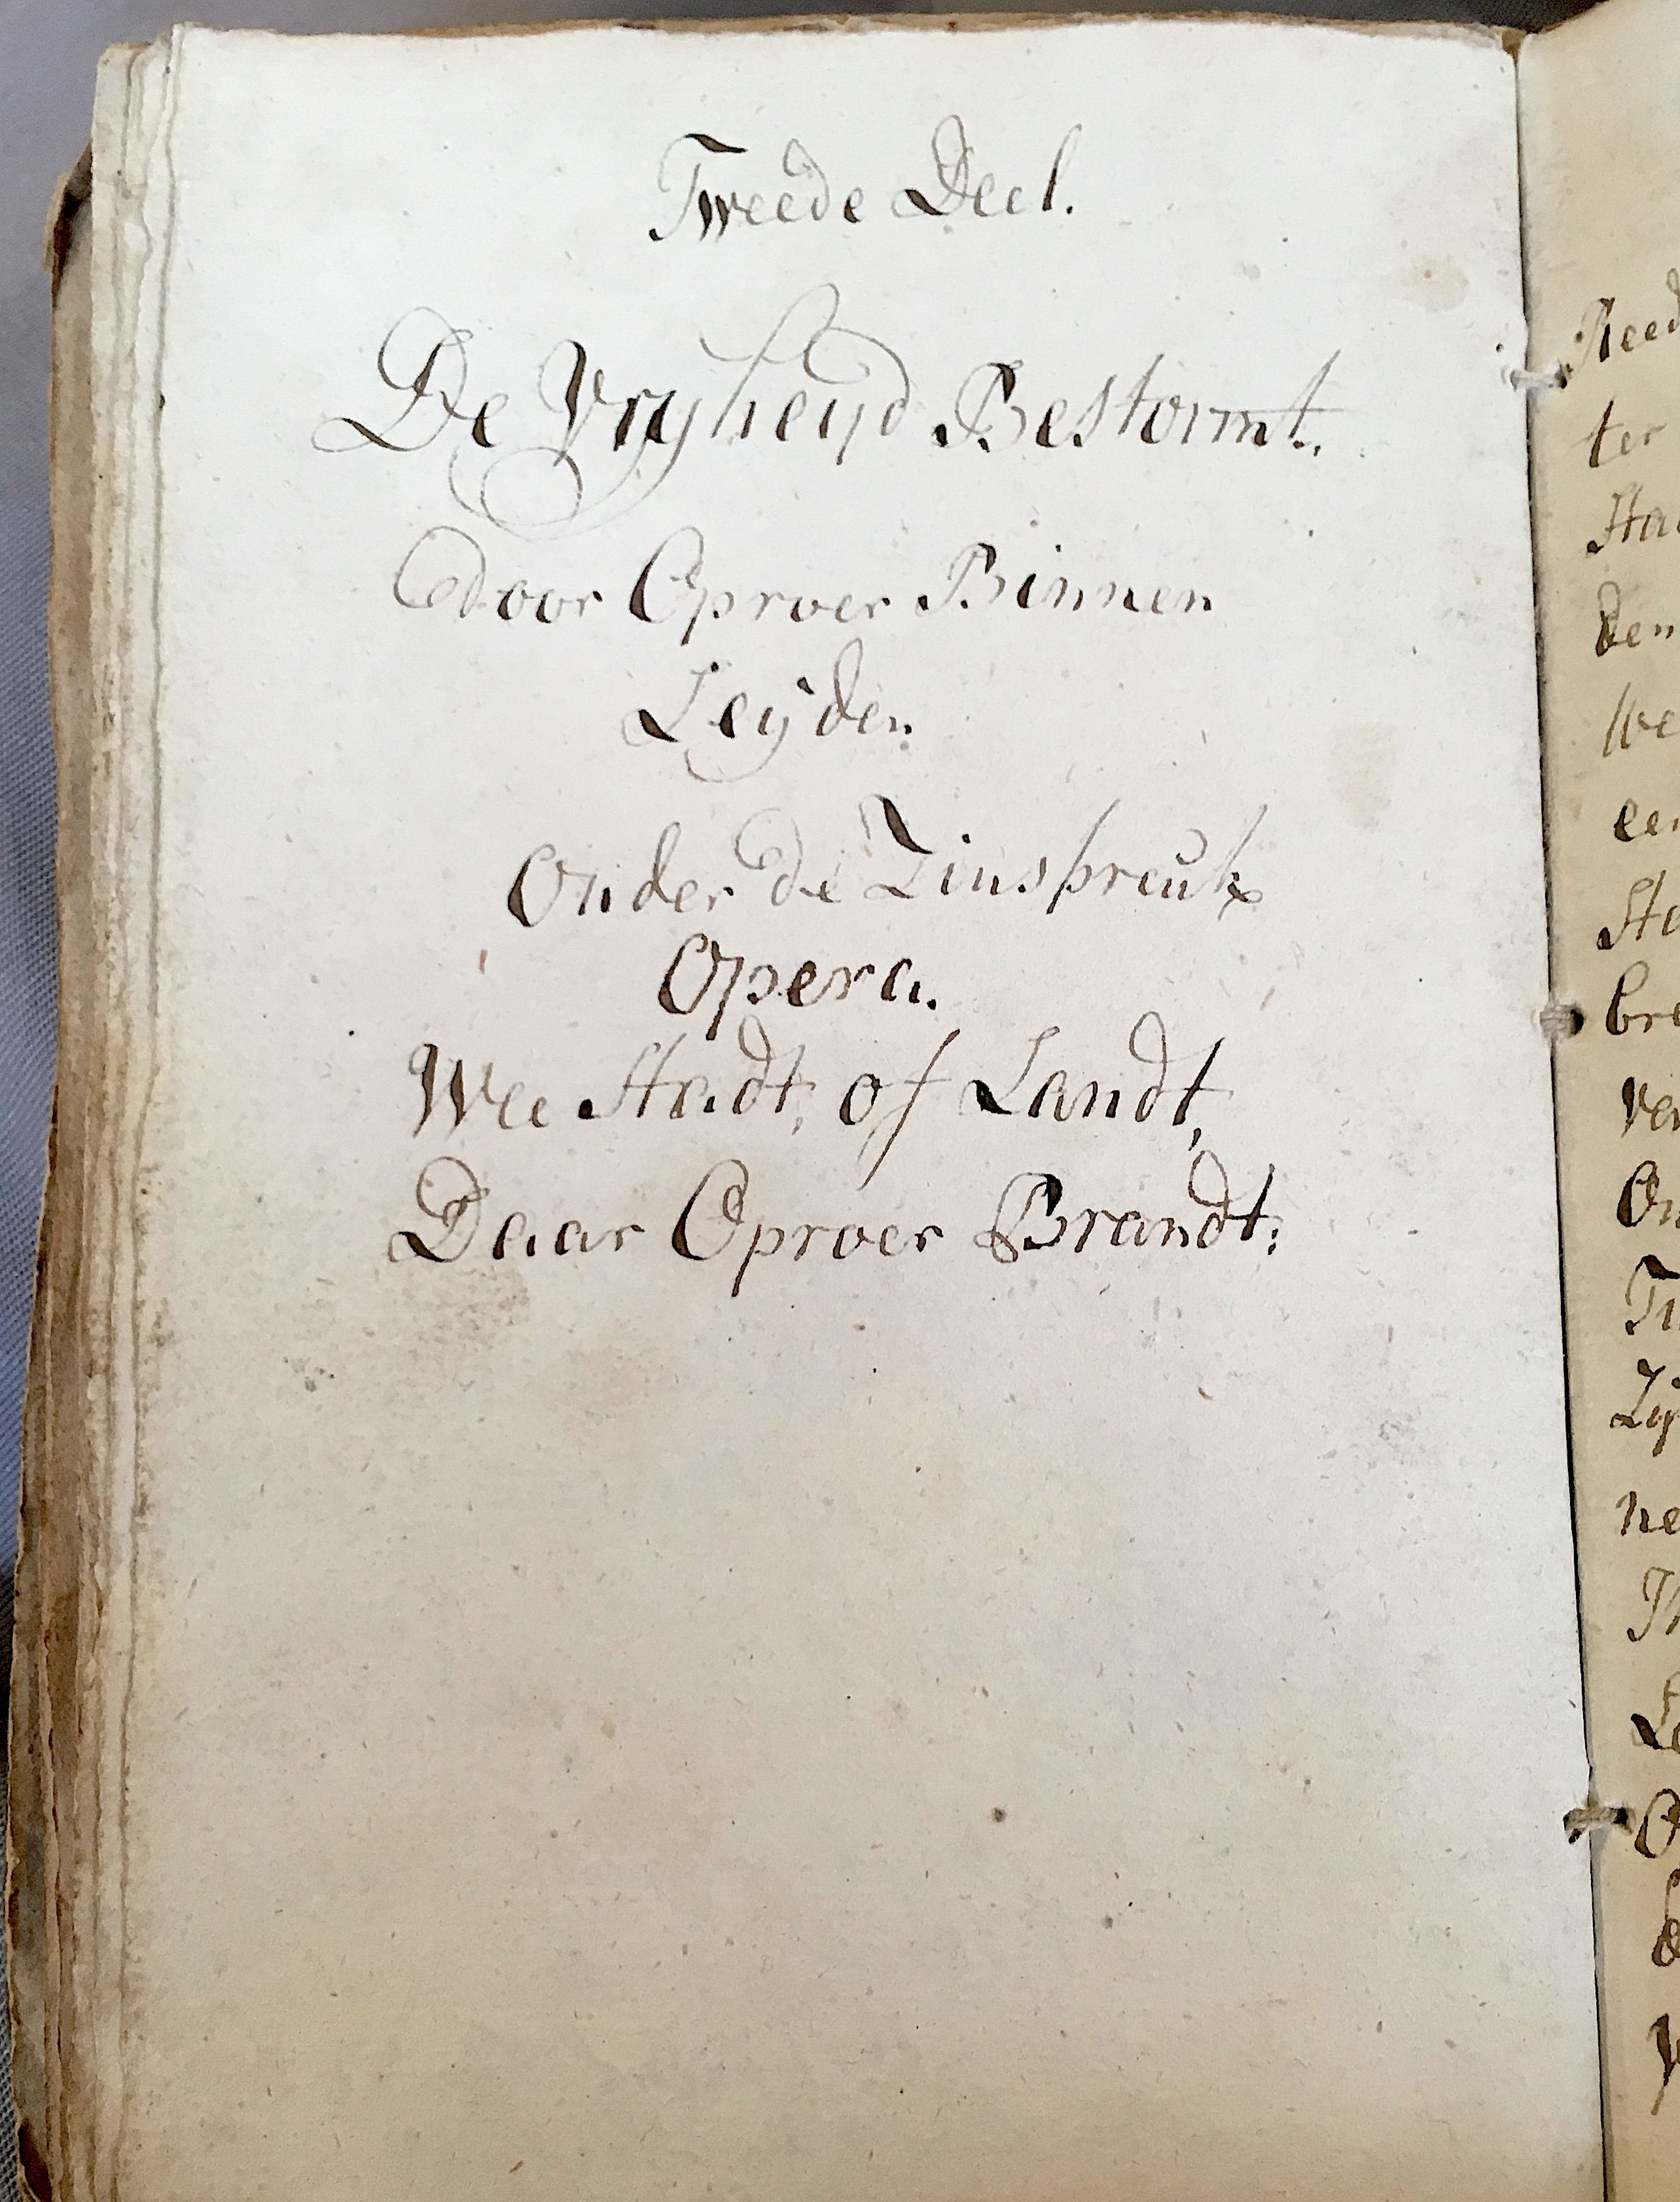 Tweede Deel.
De Vryheyd Bestormt.
door Oproer Binnen
Leyden
Onder de Zinsspreuk
Opera.
Wee Stadt, of Landt,
Daar Oproer Brandt:
Reed
ter
Sta
den
we
een
Sta
bre
ver
On
Zij
ne